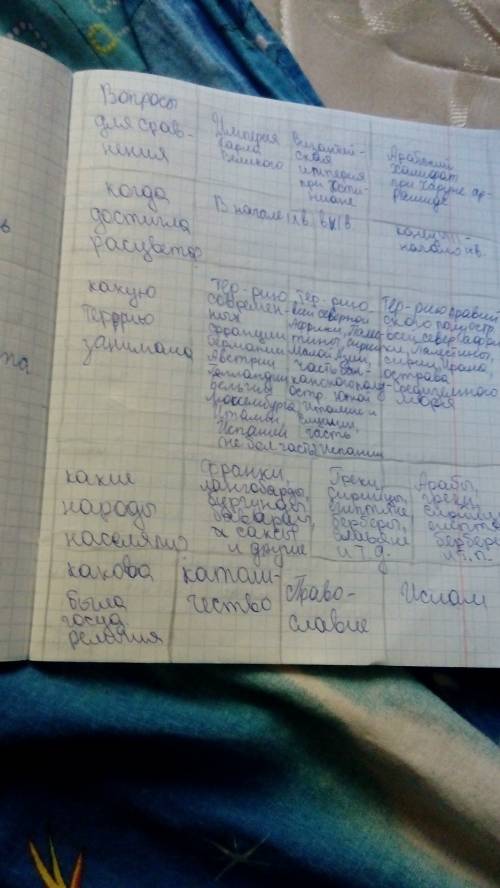 Вопросы
для срав-
нения
Империя
Карла
Великого
Византий-
ская
империя
при Юсти-
ниане
Арабский
Халифат
при Харуне ар-
Рашиде
когда
достигла
расцвета
В начале IX в.
в VI в.
конец VIII -
начало IX в.
какую
террию
занимала
Тер-рию
современ-
ной
Франции
Германии
Австрии
Голландии
Бельгии
Люксембурга
Италии
Испании
(не бол часть)
тер-рию
всей северной
Африки, Пале-
стины, Сирии,
Малой Азии,
часть Бал-
канского полу-
остр. Южной
Италии и
Сицилии,
часть
Испании
Тер-рию Аравий
ского полуостр.
всей север Африки
Палестины,
Сирии, Ирана,
острова
Средиземного
моря
какие
народы
населяли
Франки,
лангобарды,
бургунды,
бавары,
саксы
и другие
Греки,
сирийцы,
египтяне
берберы,
славяне
и т.д.
Арабы,
греки,
сирийцы
египтяне
берберы
и т.п.
какова
была
госуд
религия
католи-
чество
Право-
славие
Ислам